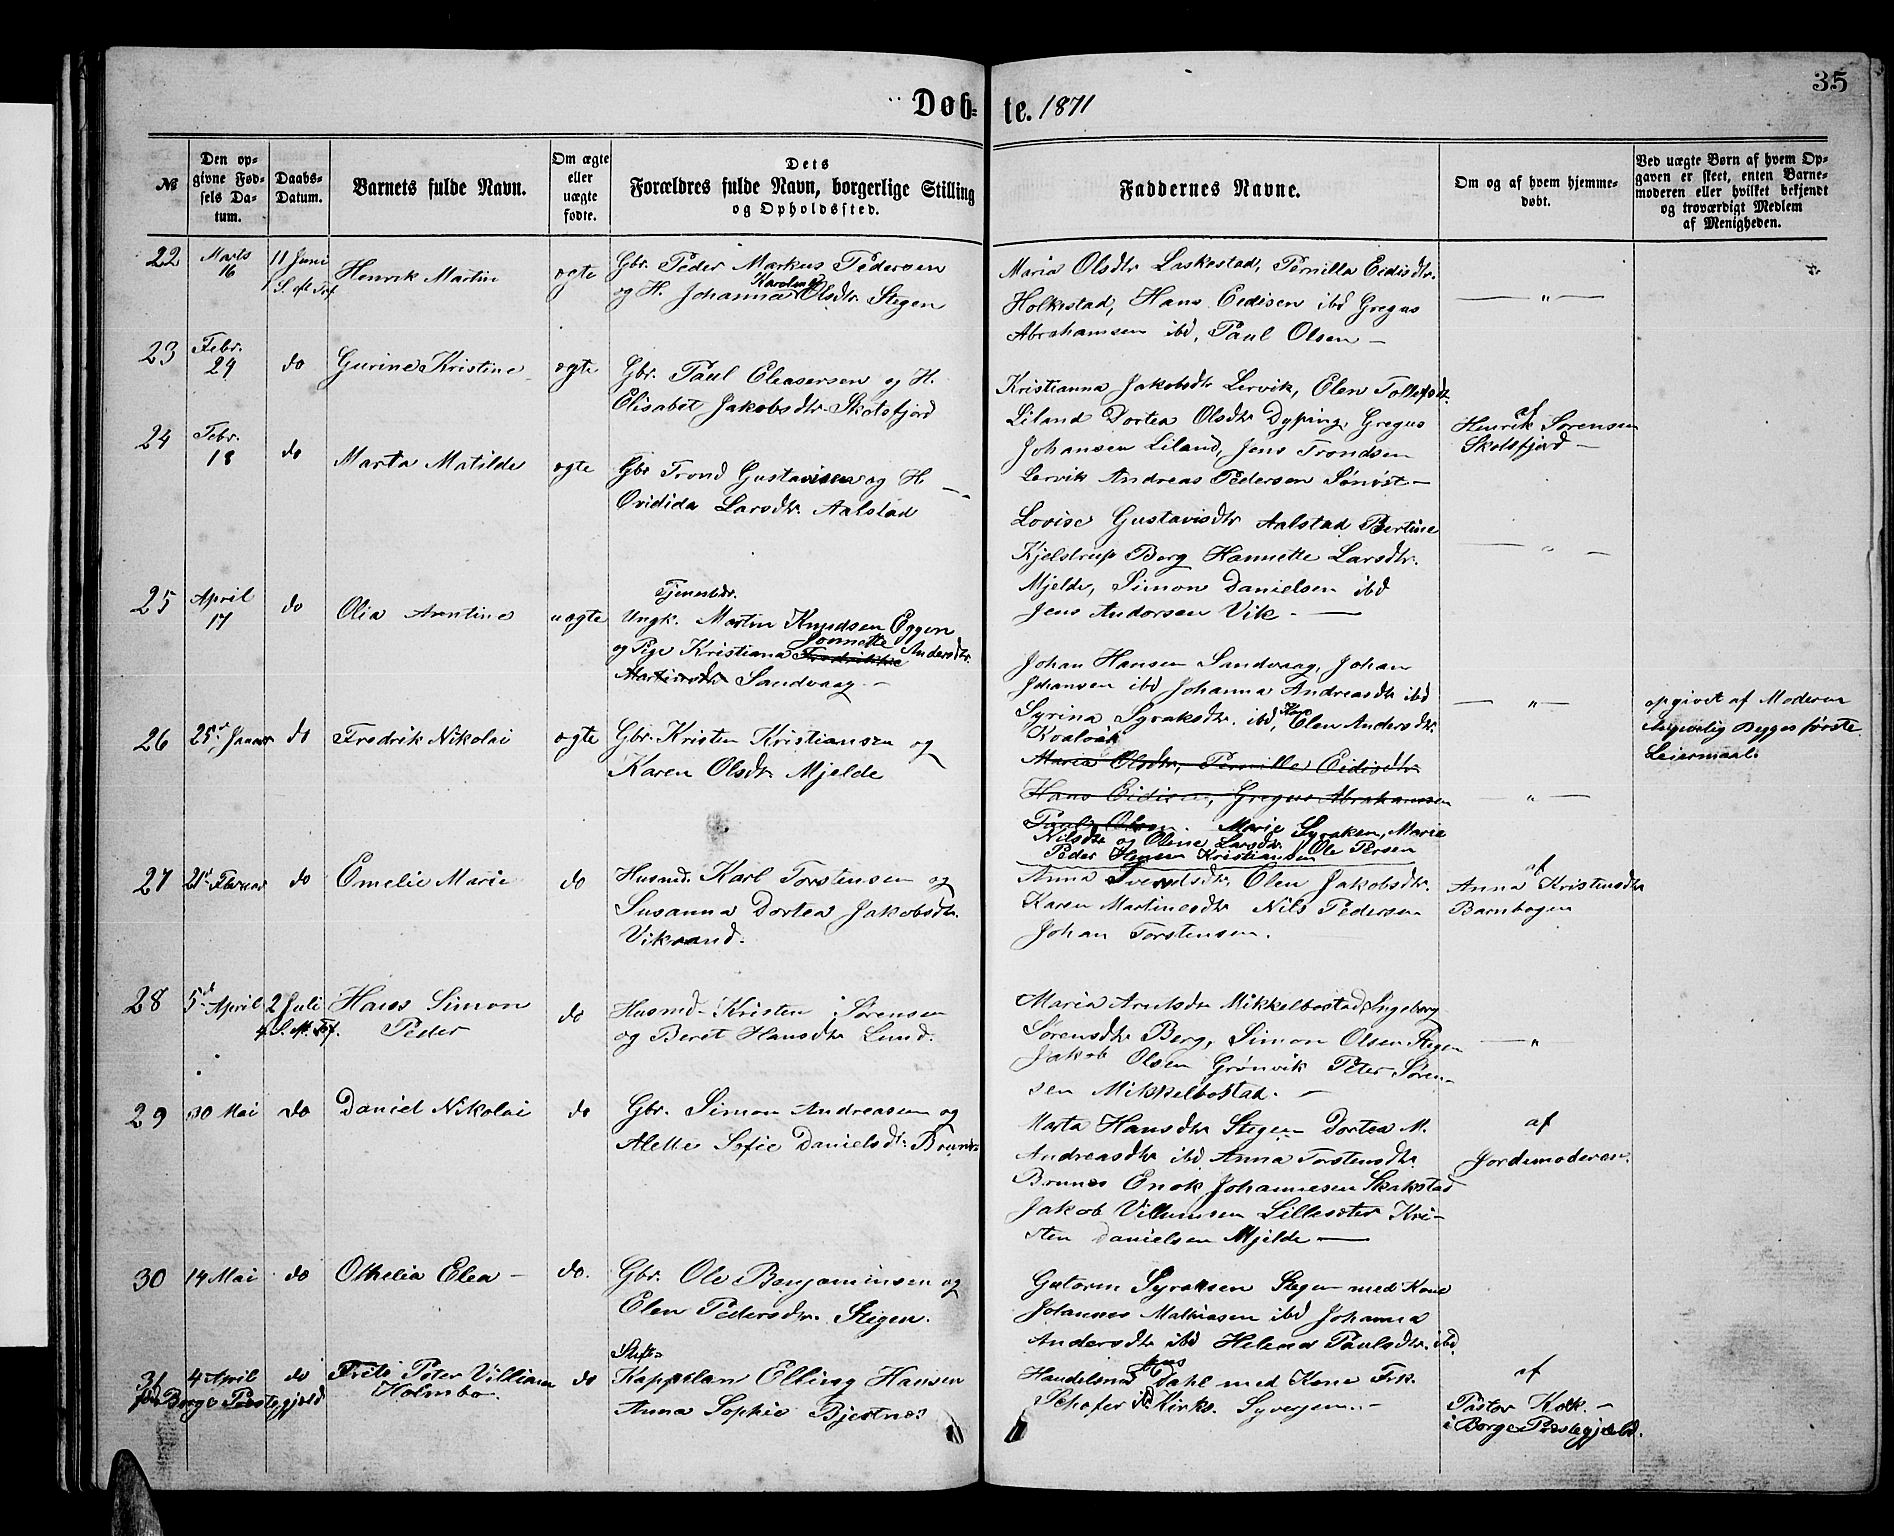 35
Døb= te. 1871
№
Den op-
givne Fød-
sels Da-
tum.
Daabs-
Datum.
Barnets fulde Navn.
Om ægte
eller
uægte
fødte.
Dets
Forældres fulde Navn, borgerlige Stilling
og Opholdssted.
Faddernes Navne.
Om og af hvem hjemme-
døbt.
Ved uægte Børn af hvem Op-
gaven er skeet, enten Barne-
moderen eller hvilket bekjendt
og troværdigt Medlem
af Menigheden.
22 Marts 16
11 Juni
1 S. eft Tref.
Henrik Martin
ægte
Gbr. Peder Markus Pedersen
og H. Johanna Karoline Olsdtr Stegen
Maria Olsdtr Laskestad, Pernilla Eidisdtr.
Holkestad, Hans Eidisen ibd Gregus
Abrahamsen ibd, Paul Olsen —
— " —
23 Febr. 24
do
Gurine Kristine
ægte
Gbr. Paul Eleasersen og H.
Elisabet Jakobsdtr Skotsfjord
Kristianna Jakobsdtr Lervik, Elen Tollefsdt.
Liland Dortea Olsdtr Dyping, Gregus
Johansen Liland, Jens Trondsen
Lervik Andreas Pedersen Sønvst —
af
Henrik Sørensen
Skotsfjord —
24 Febr. 18
do
Marta Matilde
ægte
Gbr Trond Gustavisen og H. —
Ovidida Larsdtr. Aalstad
Lovise Gustavisdtr Aalstad Bertine
Kjelstrup Borg Hannette Larsdtr.
Mjelde, Simon Danielsen ibd
Jens Andorsen Vik. —
— " —
25 April 17
do
Olia Arntine
uægte
Tjenestdr.
Ungk. Martin Knudsen Eggen
og Pige Kristiana Jonnette Andersdtr.
Martinsdtr Sandvaag —
Johan Hansen Sandvaag, Johan
Johansen ibd Johanna Andreasdtr ibd
Syrina Syraksdtr. ibd, Elen Andersdtr.
Kvalvik
— " —
opgivet af Moderen
Angivelig Begges første
Leiermaal.
26 25de Januar
do
Fredrik Nikolai
ægte
Gbr. Kristen Kristiansen og
Karen Olsdtr Mjelde
Maria Olsdtr, Pernille Eidisdtr
Hans Eidisen, Gregus Abrahamsen
Paul Olsen. Marie Syraksen, Maria
Nilsdtr og Oline Larsdtr Ole Persen
Peder Kristiansen
— " —
27 21de Februar
do
Emelie Marie
do
Husmd. Karl Torstensen og
Susanna Dortea Jakobsdtr.
Viksand.
Anna Svendsdtr. Elen Jakobsdtr.
Karen Martinesdtr Nils Pedersen
Johan Torstensen.
af
Anna Kristensdtr
Barnhogen
28 5d April
2 Juli
4 S. eft. Tref.
Hans Simon
Peder
do
Husmd. Kristen Sørensen
og Beret Hansdtr Lund.
Maria Arntsdtr Mikkelbostad, Ingeborg
Sørensdtr Berg, Simon Olsen Stegen
Jakob Olsen Grønvik Peter Søren-
sen Mikkelbostad. —
— "
29 30 Mai
do
Daniel Nikolai
do
Gbr. Simon Andreasen og
Alette Sofie Danielsdt. Brunes
Marta Hansdtr Stegen Dortea M.
Andreasdtr ibd Anna Torstensdtr.
Brunes Enok Johannesen Skakstad
Jakob Villumsen Lillesæter Kri-
sten Danielsen Mjelde —
af
Jordemoderen.
30 14 Mai
do
Othelia Elea —
do.
Gbr. Ole Benjaminsen og
Elen Pedersdtr. Stegen.
Gutorm Syraksen Stegen med Kone
Johannes Mathiasen ibd Johanna
Andersdtr ibd Helena Paulsdtr. ibd.
31 4 April
født Borge Præstegjeld
do
Frits Peter Villiam
Holmbo
do
Stifts=
Kappelan Elling Hansen
Anna Sophie Bjestnes
Handelsmd Dahl med Kone Frk.
Schøfer ibd Kirks. Syversen. —
af
Pastor Kolk. —
i Borge Præstegjeld.